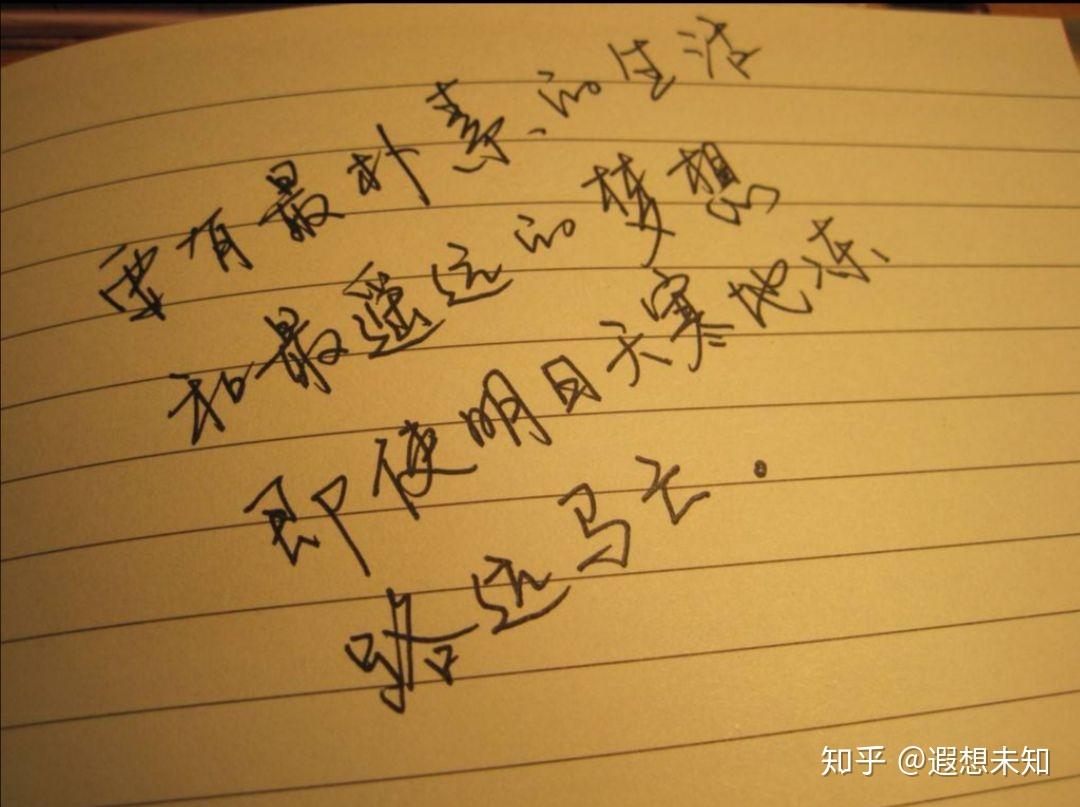 要有最朴素的生活
和最遥远的梦想
即使明日天寒地冻
路远马亡.
知乎 @遐想未知